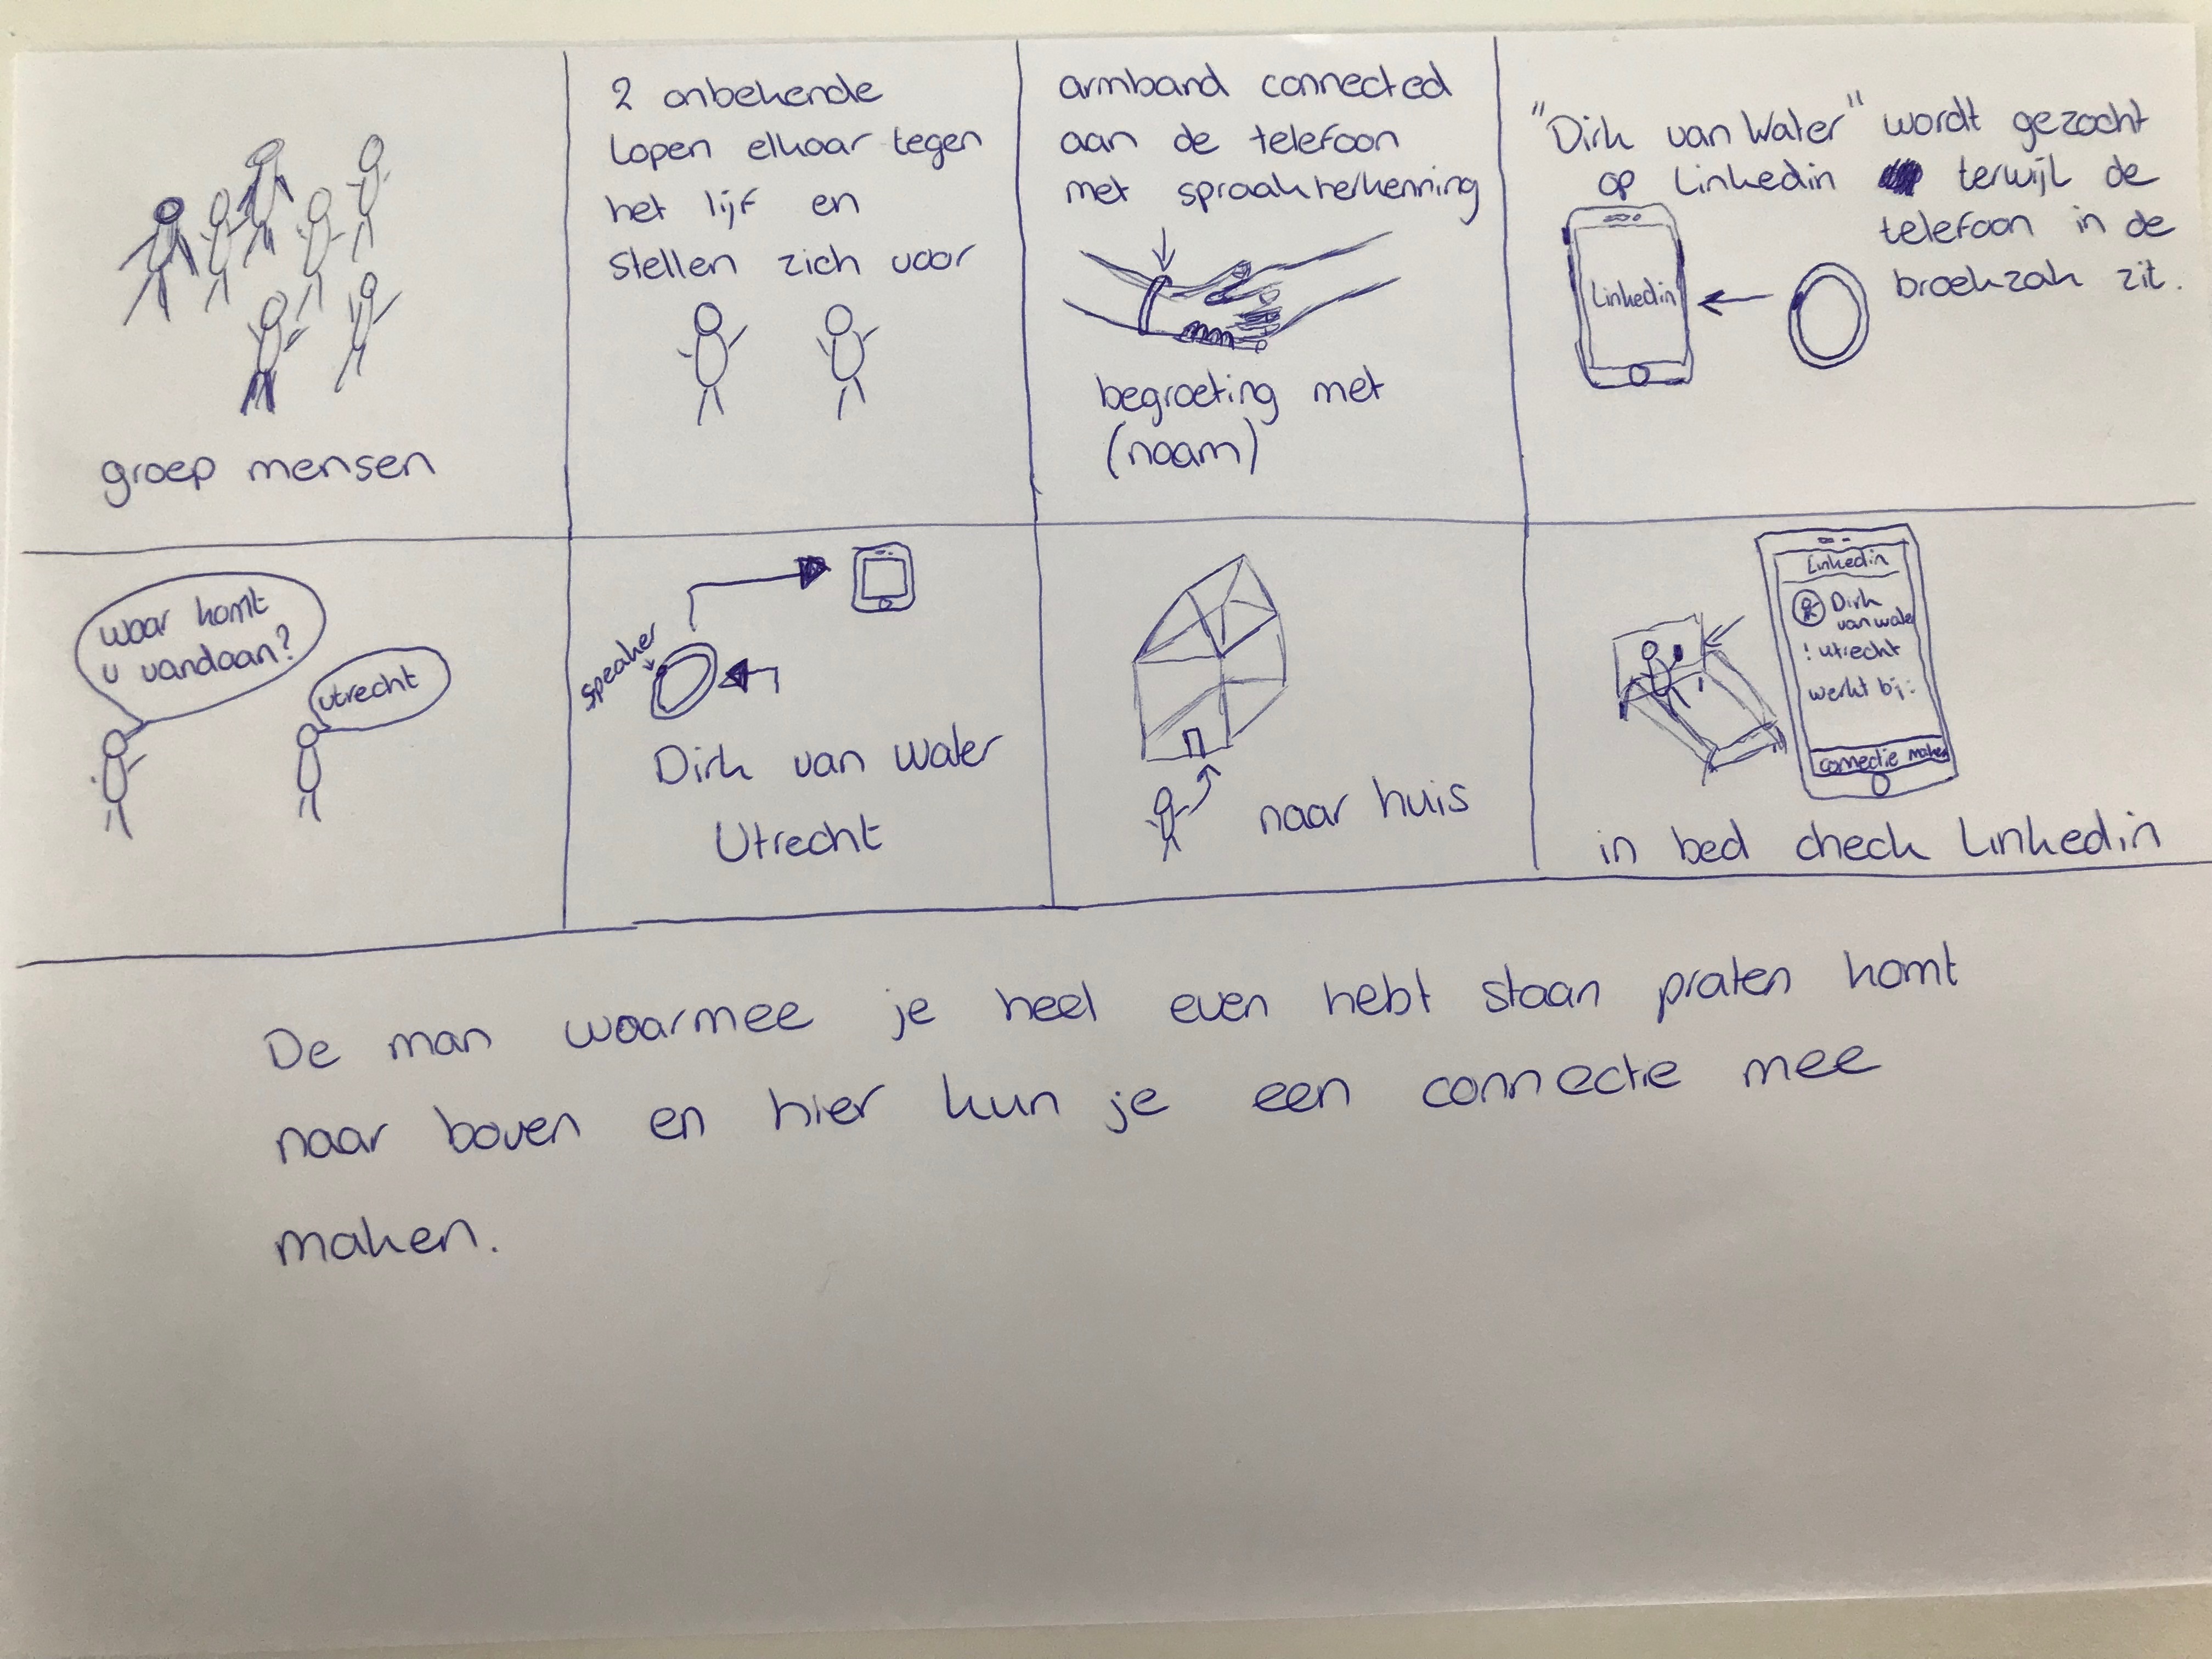 groep mensen
2 onbekende
lopen elkaar tegen
het lijf en
stellen zich voor
armband connected
aan de telefoon
met spraakherkenning
begroeting met
(naam)
"Dirk van Water" wordt gezocht
op Linkedin terwijl de
telefoon in de
broekzak zit.
Linkedin
waar komt
u vandaan?
utrecht
speaker
Dirk van Water
Utrecht
naar huis
Linkedin
Dirk
van water
! utrecht
werkt bij:
connectie maken
in bed check Linkedin
De man waarmee je heel even hebt staan praten komt
naar boven en hier kun je een connectie mee
maken.